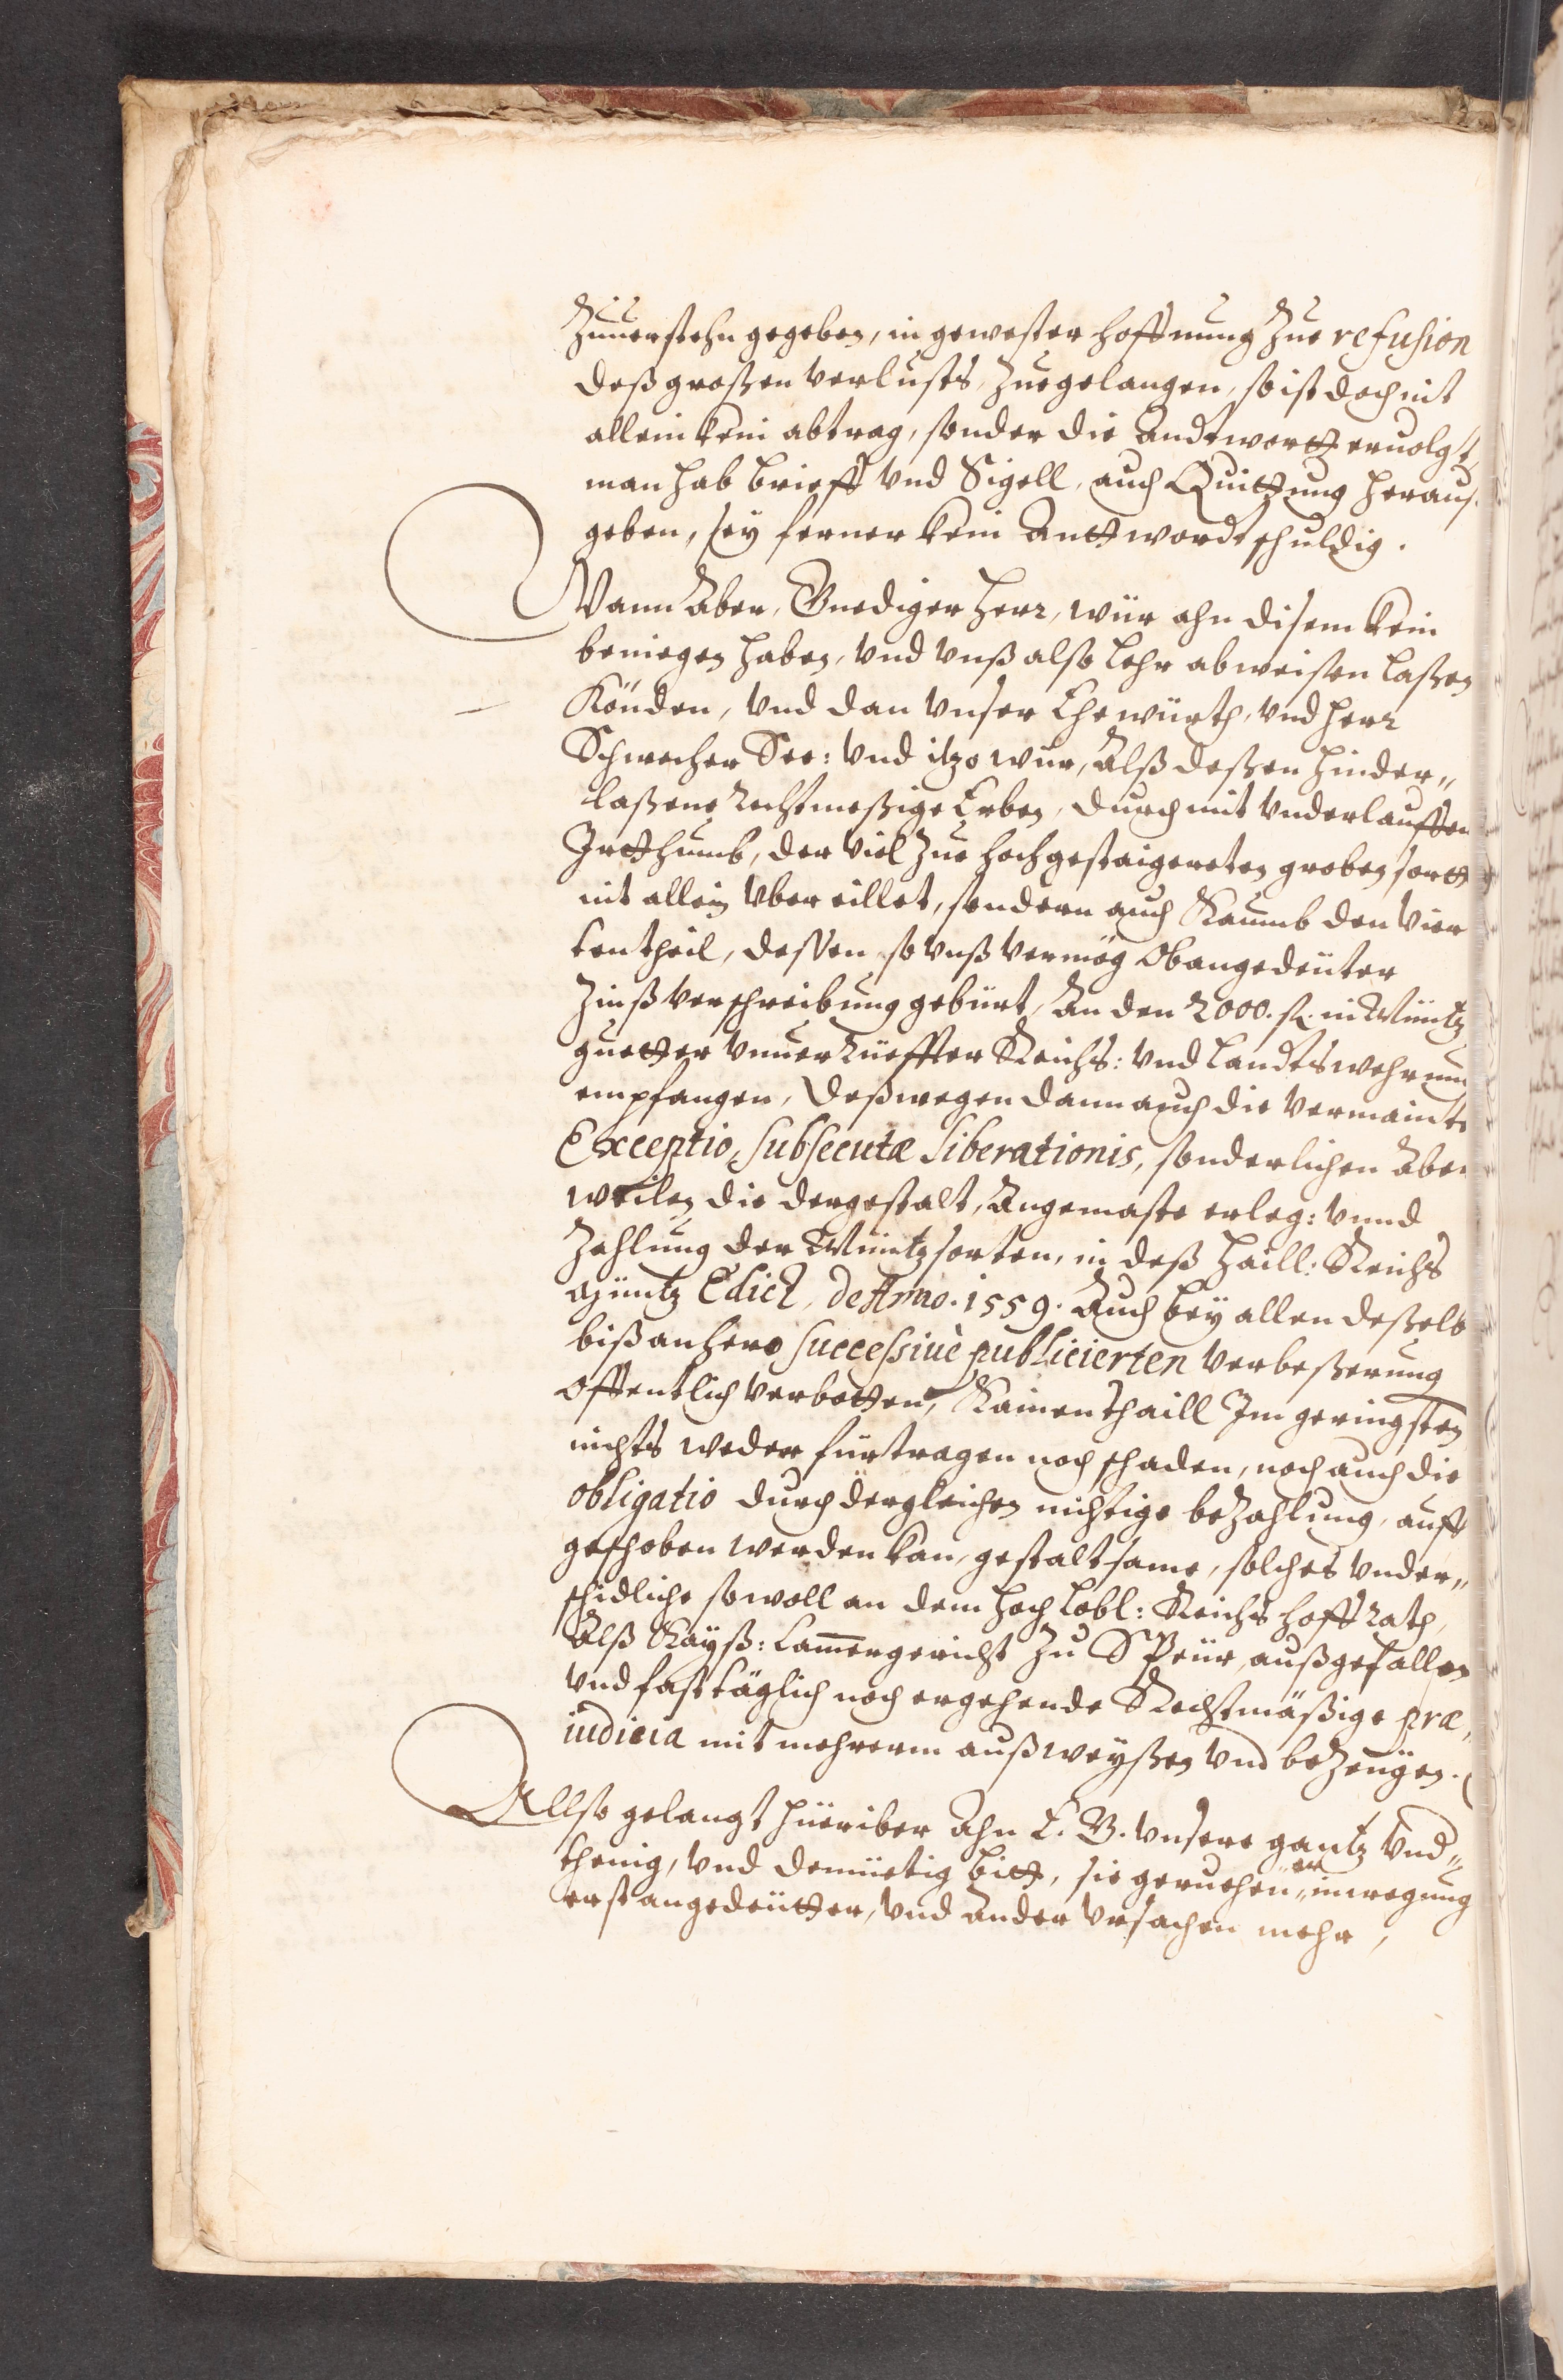 Zuuerstehn gegeben, in gewester hoffnung Zue refusion
deß großen verlusts, Zuegelangen, so ist doch nit
allein kein abtrag, sonder die Andtwortt eruolgt,
man hab brieff vnd Sigell, auch Quittung heraus
geben, sey ferner kein Anttwordt schuldig.
Wann Aber, Gnediger Herr, wür ahn disem kein
beniegen haben, vnd vnß also lehr abweisen laßen
Könden, vnd dan vnser Ehewürth, vnd Herr
Schwecher See: vnd itzo wür, Alß deßen hinder„
laßene Rechtmeßige Erben, durch mit vnderlauffen
Irtthumb, der viel Zue hochgestaigereten groben sortt
nit allein vbereillet, sondern auch Kaumb den vier
ten theil, dessen, so vnß vermög Obangedeüter
Zinßverschreibung gebürt, An den 2000. fl. in Müntz
guetter vnuerrüeffter Reichs: vnd Landtswehrung
empfangen, deßwegen dann auch die vermainte
Exceptio, subsecutæ liberationis, sonderlichen Aber
weilen die dergestalt, Angemaste erleg: vnnd
Zahlung der Müntzsorten, in deß Haill: Reichs
Müntz Edict, de Anno. 1559. Auch bey allen deßelb
biß anhero successiuè publicierten verbeßerung
offentlich verbotten, Kainen thaill Im geringsten
nichts weder fürtragen noch schaden, noch auch die
obligatio durch dergleichen nichtige bezahlung, auff
geschoben werden kan, gestaltsame, solches vnder„
schidliche sowoll an dem Hochlobl: Reichs hoffRath,
Alß Kayß: Cammergericht Zu Speür, außgefallen
vnd fast täglich noch ergehende Rechtmäßige præ„
iudicia mit mehrerm außweyßen vnd bezeugen.
Allso gelangt hüeriber Ahn E. G. vnsere gantz vnd„
thenig, vnd demüetig bitt, sie geruehen, in erwegung
erstangedeütter, vnd Ander vrsachen mehr,